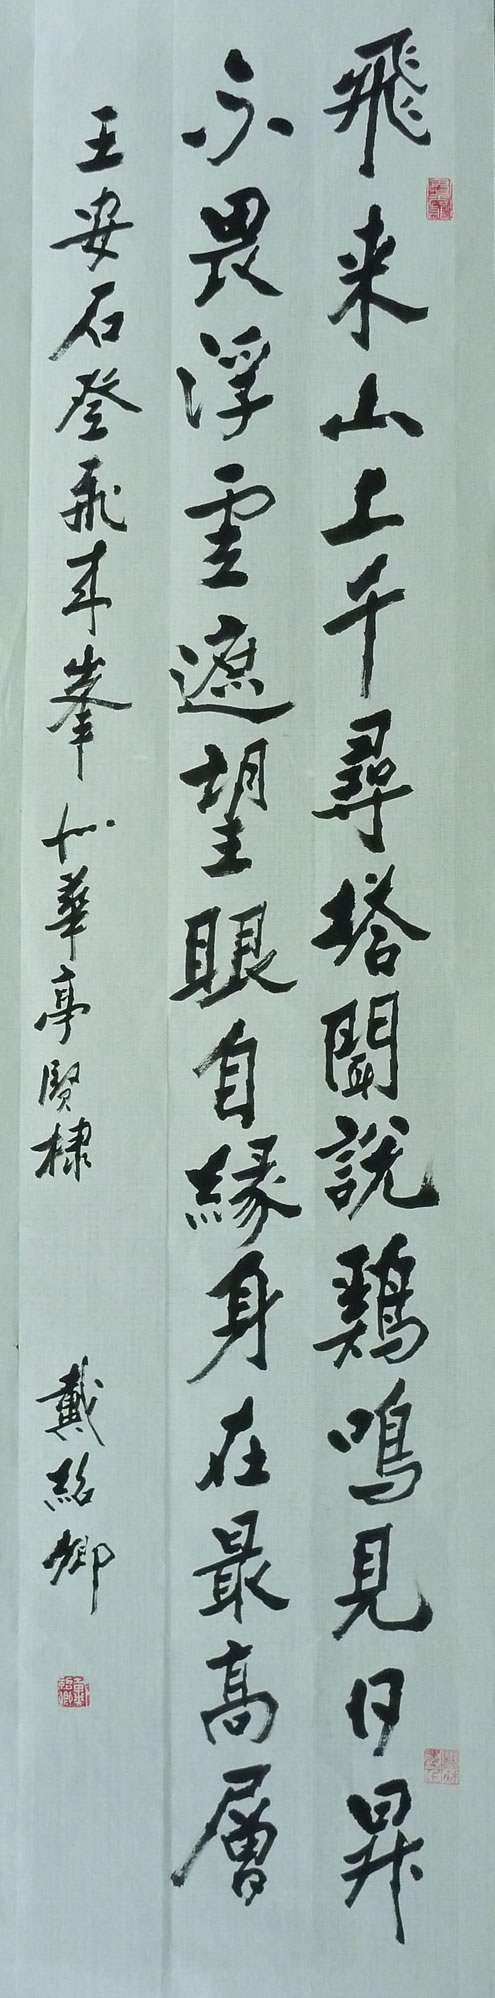 飛来山上千尋塔聞説鷄鳴見日昇
不畏浮雲遮望眼自緣身在最高層
王安石登飛来峯 以華亭賢棣 戴紹卿